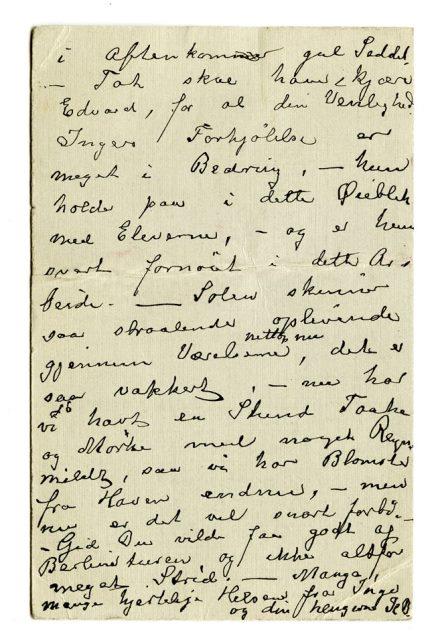 i Aften kommer gul Seddel
— Tak skae have, kjære
Edvard, for al din Venlighed.
Ingers Forkjölelse er
meget i Bedring, — hun
holde paa i dette Øieblik
med Eleverne, — og er hun
svært fornöiet i dette Ar-
beide. — Solen skinner
saa straalende oplivende
gjennem Værelserne, nettop nu det er
saa vakkert, — nu har
vi havt en Stund Taake
og Mörke med noget Regn
mildt, saa vi har Blomster
fra Haven endnu, — men
nu er det vel snart forbi. —
— Gid Du vilde faa godt af
Berlinerturen og ikke altfor
meget Strid. — Mange,
mange hjertelige Hilsen fra Inge
og din hengivne